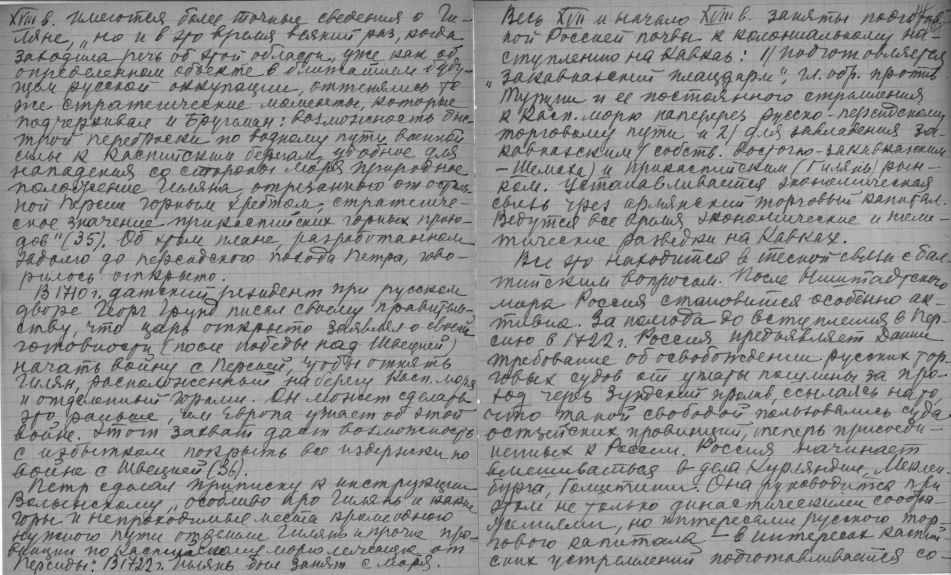 XVIII в. имеются более точные сведения о Ги-
ляне, „но и в это время всякий раз, когда
заходила речь об этой области, уже как об
определенном объекте в ближайшем буду-
щем русской оккупации, отменялись те
же стратегические моменты, которые
подчеркивал и Бругман: возможность быс-
трой переброски по водному пути военной
силы к Каспийским берегам, удобное для
нападения со стороны моря природное
положение Гиляна, отрезанного от осталь-
ной Персии горным хребтом, стратегиче-
ское значение прикаспийских горных прохо-
дов" (35). Об этом плане, разработанном
задолго до персидского похода Петра, гово-
рилось открыто.
В 1710 г. датский резидент при русском
дворе Георг Грунд писал своему правитель-
ству, что царь открыто заявлял о своей
готовности (после победы над Швецией)
начать войну с Персией, чтобы отнять
Гилян, расположенный на берегу Касп. моря
и отделенный горами. Он может сделать
это раньше, чем Европа узнает об этой
войне. Этот захват даст возможность
с избытком покрыть все издержки по
войне с Швецией (36).
Петр сделал приписку к инструкции
Волынскому „особливо про Гилянь и какие
горы и непроходимые места кроме одного
нужного пути отделили Гилянь и прочие про-
винции по Каспийскому морю лежащие от
Персиды". В 1722 г. Гилянь был занят с моря.
Весь XVII и начало XVIII в. заняты подготов-
кой Россией почвы к колониальному на-
ступлению на Кавказ: 1) подготовляется
„закавказский плацдарм", гл. обр. против
Турции и ее постоянного стремления
к Касп. морю наперерез русско-персидскому
торговому пути и 2) для завладения за-
кавказским собств. (Восточно-закавказским
– Шемаха) и прикаспийским (Гилянь) рын-
ком. Устанавливается экономическая
связь через армянский торговый капитал.
Ведутся все время экономические и поли-
тические разведки на Кавказ.
Все это находится в тесной связи с бал-
тийским вопросом. После Ништадтского
мира Россия становится особенно ак-
тивна. За полгода до вступления в Пер-
сию в 1722 г. Россия предъявляет Дании
требование об освобождении русских тор-
говых судов от уплаты пошлины за про-
ход через Зундский пролив, ссылаясь на то,
что такой свободой пользовались суда
остзейских провинций, теперь присоеди-
ненных к России. Россия начинает
вмешиваться в дела Курляндии, Меклен
бурга, Голштинии. Она руководится при
этом не только династическими сообра-
жениями, но интересами русского тор-
гового капитала – в интересах каспий
ских устремлений подготавливается со-